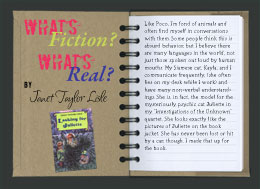 WHAT'S
Fiction?
WHAT'S
Real?
BY
Janet Taylor Lisle
Looking for
Juliette
Like Poco, I'm fond of animals and
often find myself in conversations
with them. Some people think this is
absurd behavior, but I believe there
are many languages in the world, not
just those spoken out loud by human
mouths. My Siamese cat, Kayla, and I
communicate frequently. (She often
lies on my desk while I work) and
have many non-verbal understand-
ings. She is, in fact, the model for the
mysteriously psychic cat Juliette in
my "Investigators of the Unknown"
quartet. She looks exactly like the
pictures of Juliette on the book
jacket. She has never been lost or hit
by a car, though. I made that up for
the book.